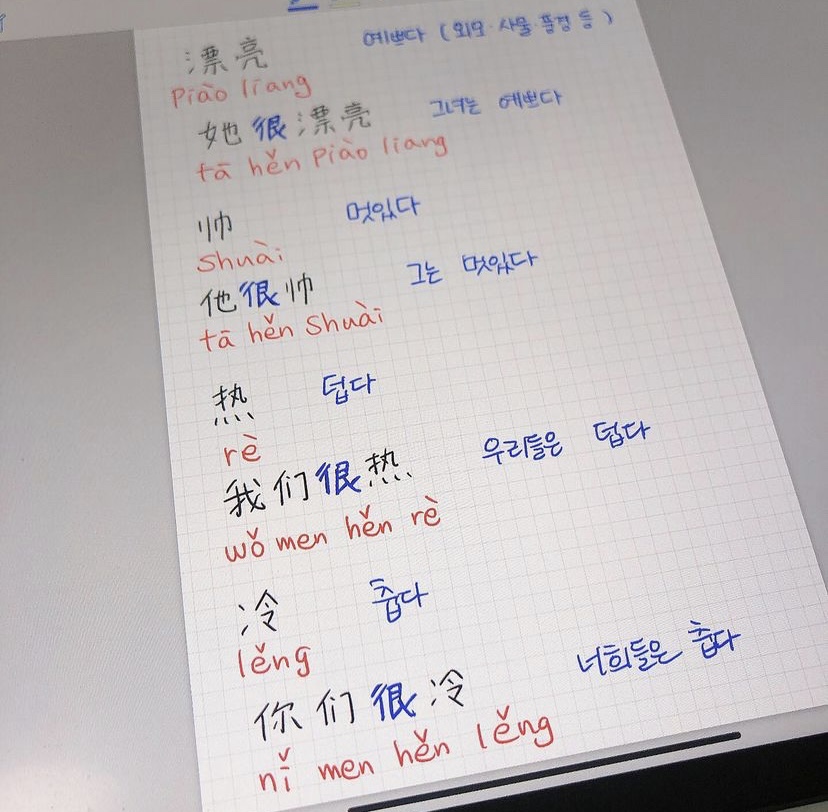 漂亮 예쁘다 (외모·사물·풍경 등)
Piào liang
她很漂亮 그녀는 예쁘다
tā hěn Piào liang
帅 멋있다
Shuài
他很帅 그는 멋있다
tā hěn Shuài
热 덥다
rè
我们很热 우리들은 덥다
wǒ men hěn rè
冷 춥다
lěng
你们很冷 너희들은 춥다
nǐ men hěn lěng